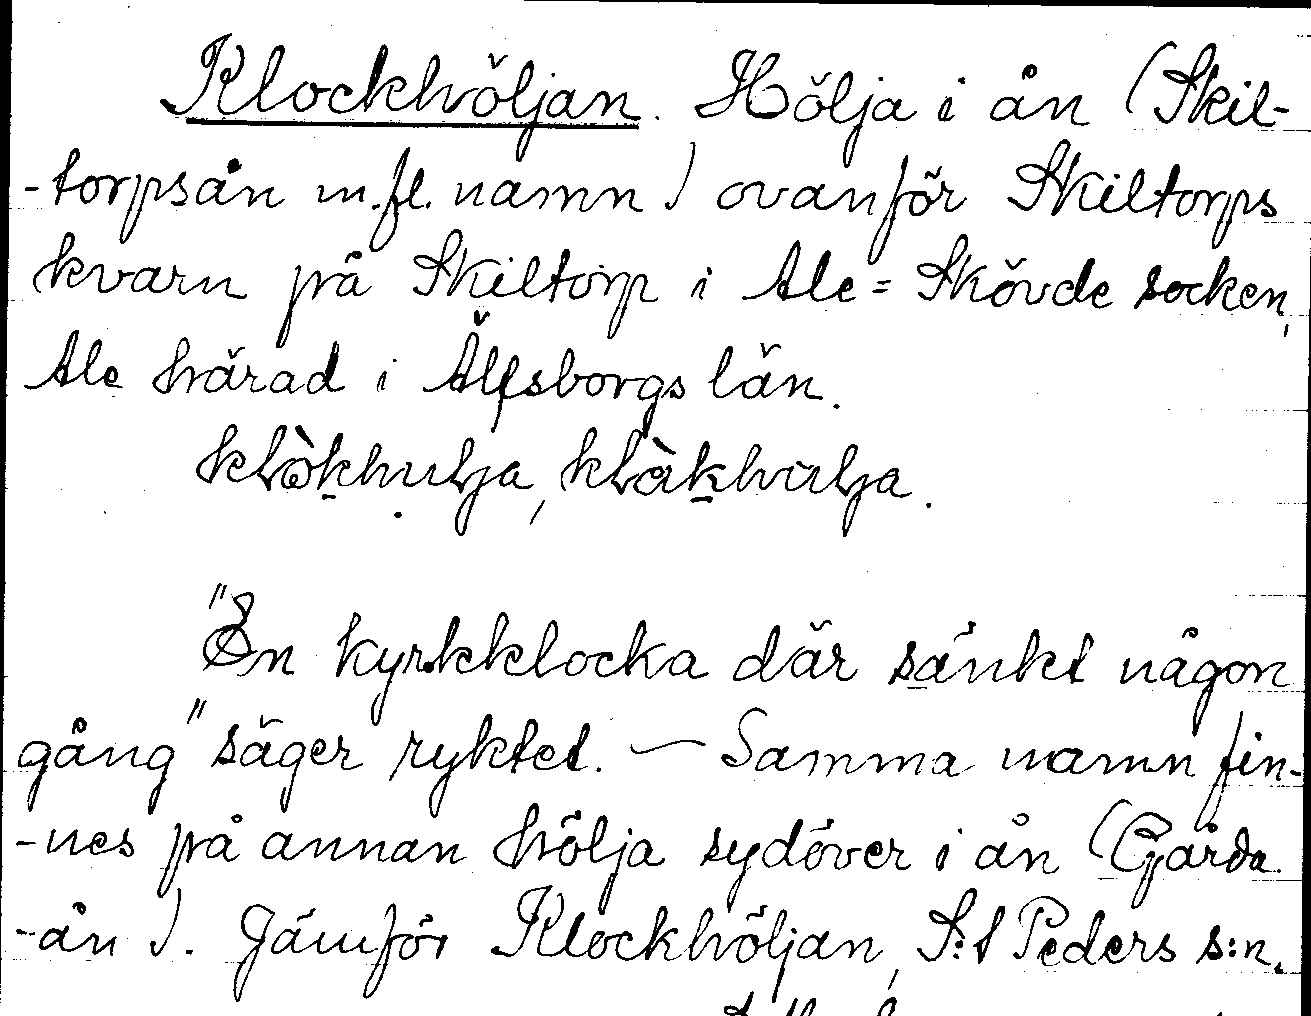 Klockhöljan. Hölja i ån (Skil-
-torpsån m.fl. namn) ovanför Skiltorps
kvarn på Skiltorp i Ale=Skövde socken,
Ale härad i Älfsborgs län.
klòkhulja, klàkhulja.
"En kyrkklocka där sänkt någon
gång" säger ryktet. — Samma namn fin-
-nes på annan hölja sydöver i ån (Gårda
-ån). Jämför Klockhöljan, S:t Peders s:n.